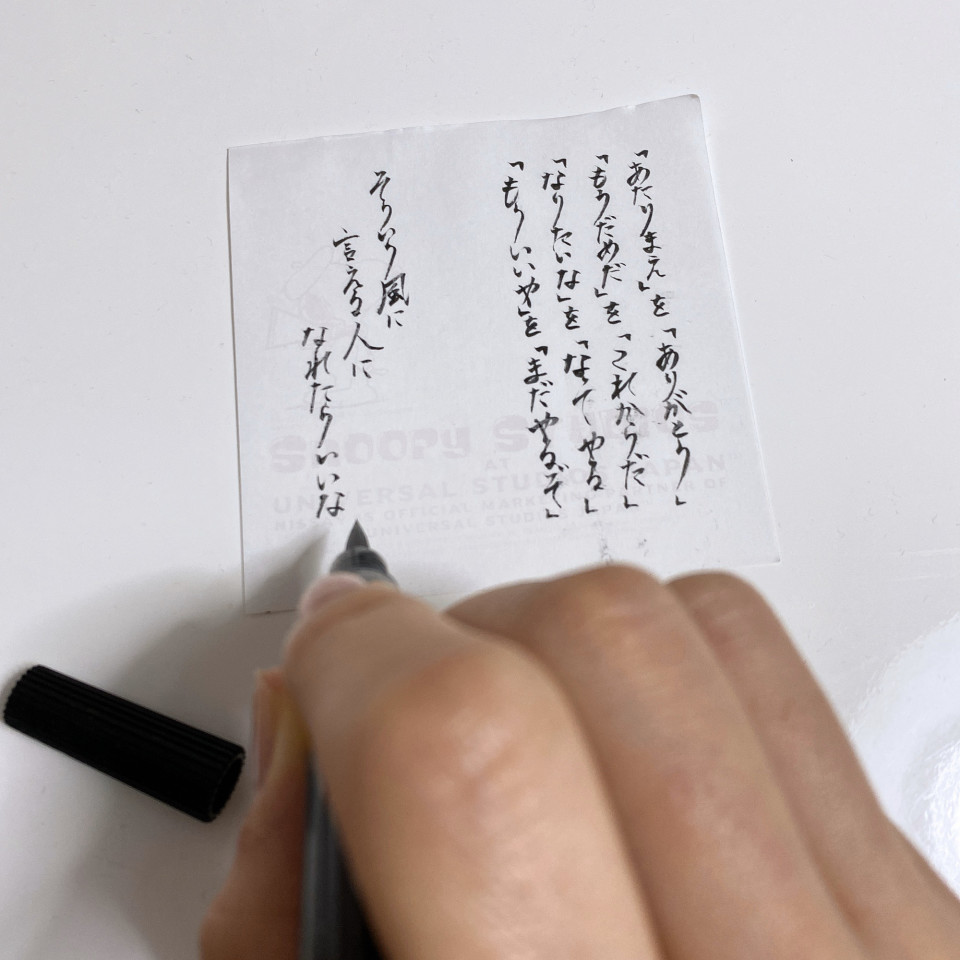 「あたりまえ」を「ありがとう」
「もうだめだ」を「これからだ」
「なりたいな」を「なってやる」
「もういいや」を「まだやるぞ」
そういう風に
言える人に
なれたらいいな
SNOOPY STUDIOS
AT
UNIVERSAL STUDIOS JAPAN
OFFICIAL MARKETING PARTNER OF
UNIVERSAL STUDIOS JAPAN